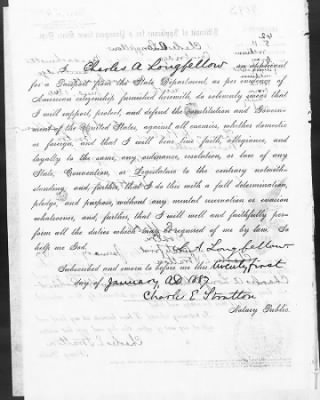 I, Charles A Longfellow, an applicant
for a Passport from the State Department, as per evidence of
American citizenship furnished herewith, do solemnly swear that
I will support, protect, and defend the Constitution and Govern-
ment of the United States, against all enemies, whether domestic
or foreign, and that I will bear true faith, allegiance, and
loyalty to the same, any ordinance, resolution, or law of any
State, Convention, or Legislature to the contrary notwith-
standing, and, further, that I do this with a full determination,
pledge, and purpose, without any mental reservation or evasion
whatsoever, and, further, that I will well and faithfully per-
form all the duties which may be required of me by law. So
help me God.
Ch A Longfellow
Subscribed and sworn to before me this twenty first
day of January, AD 1887
Charles E Stratton
Notary Public.